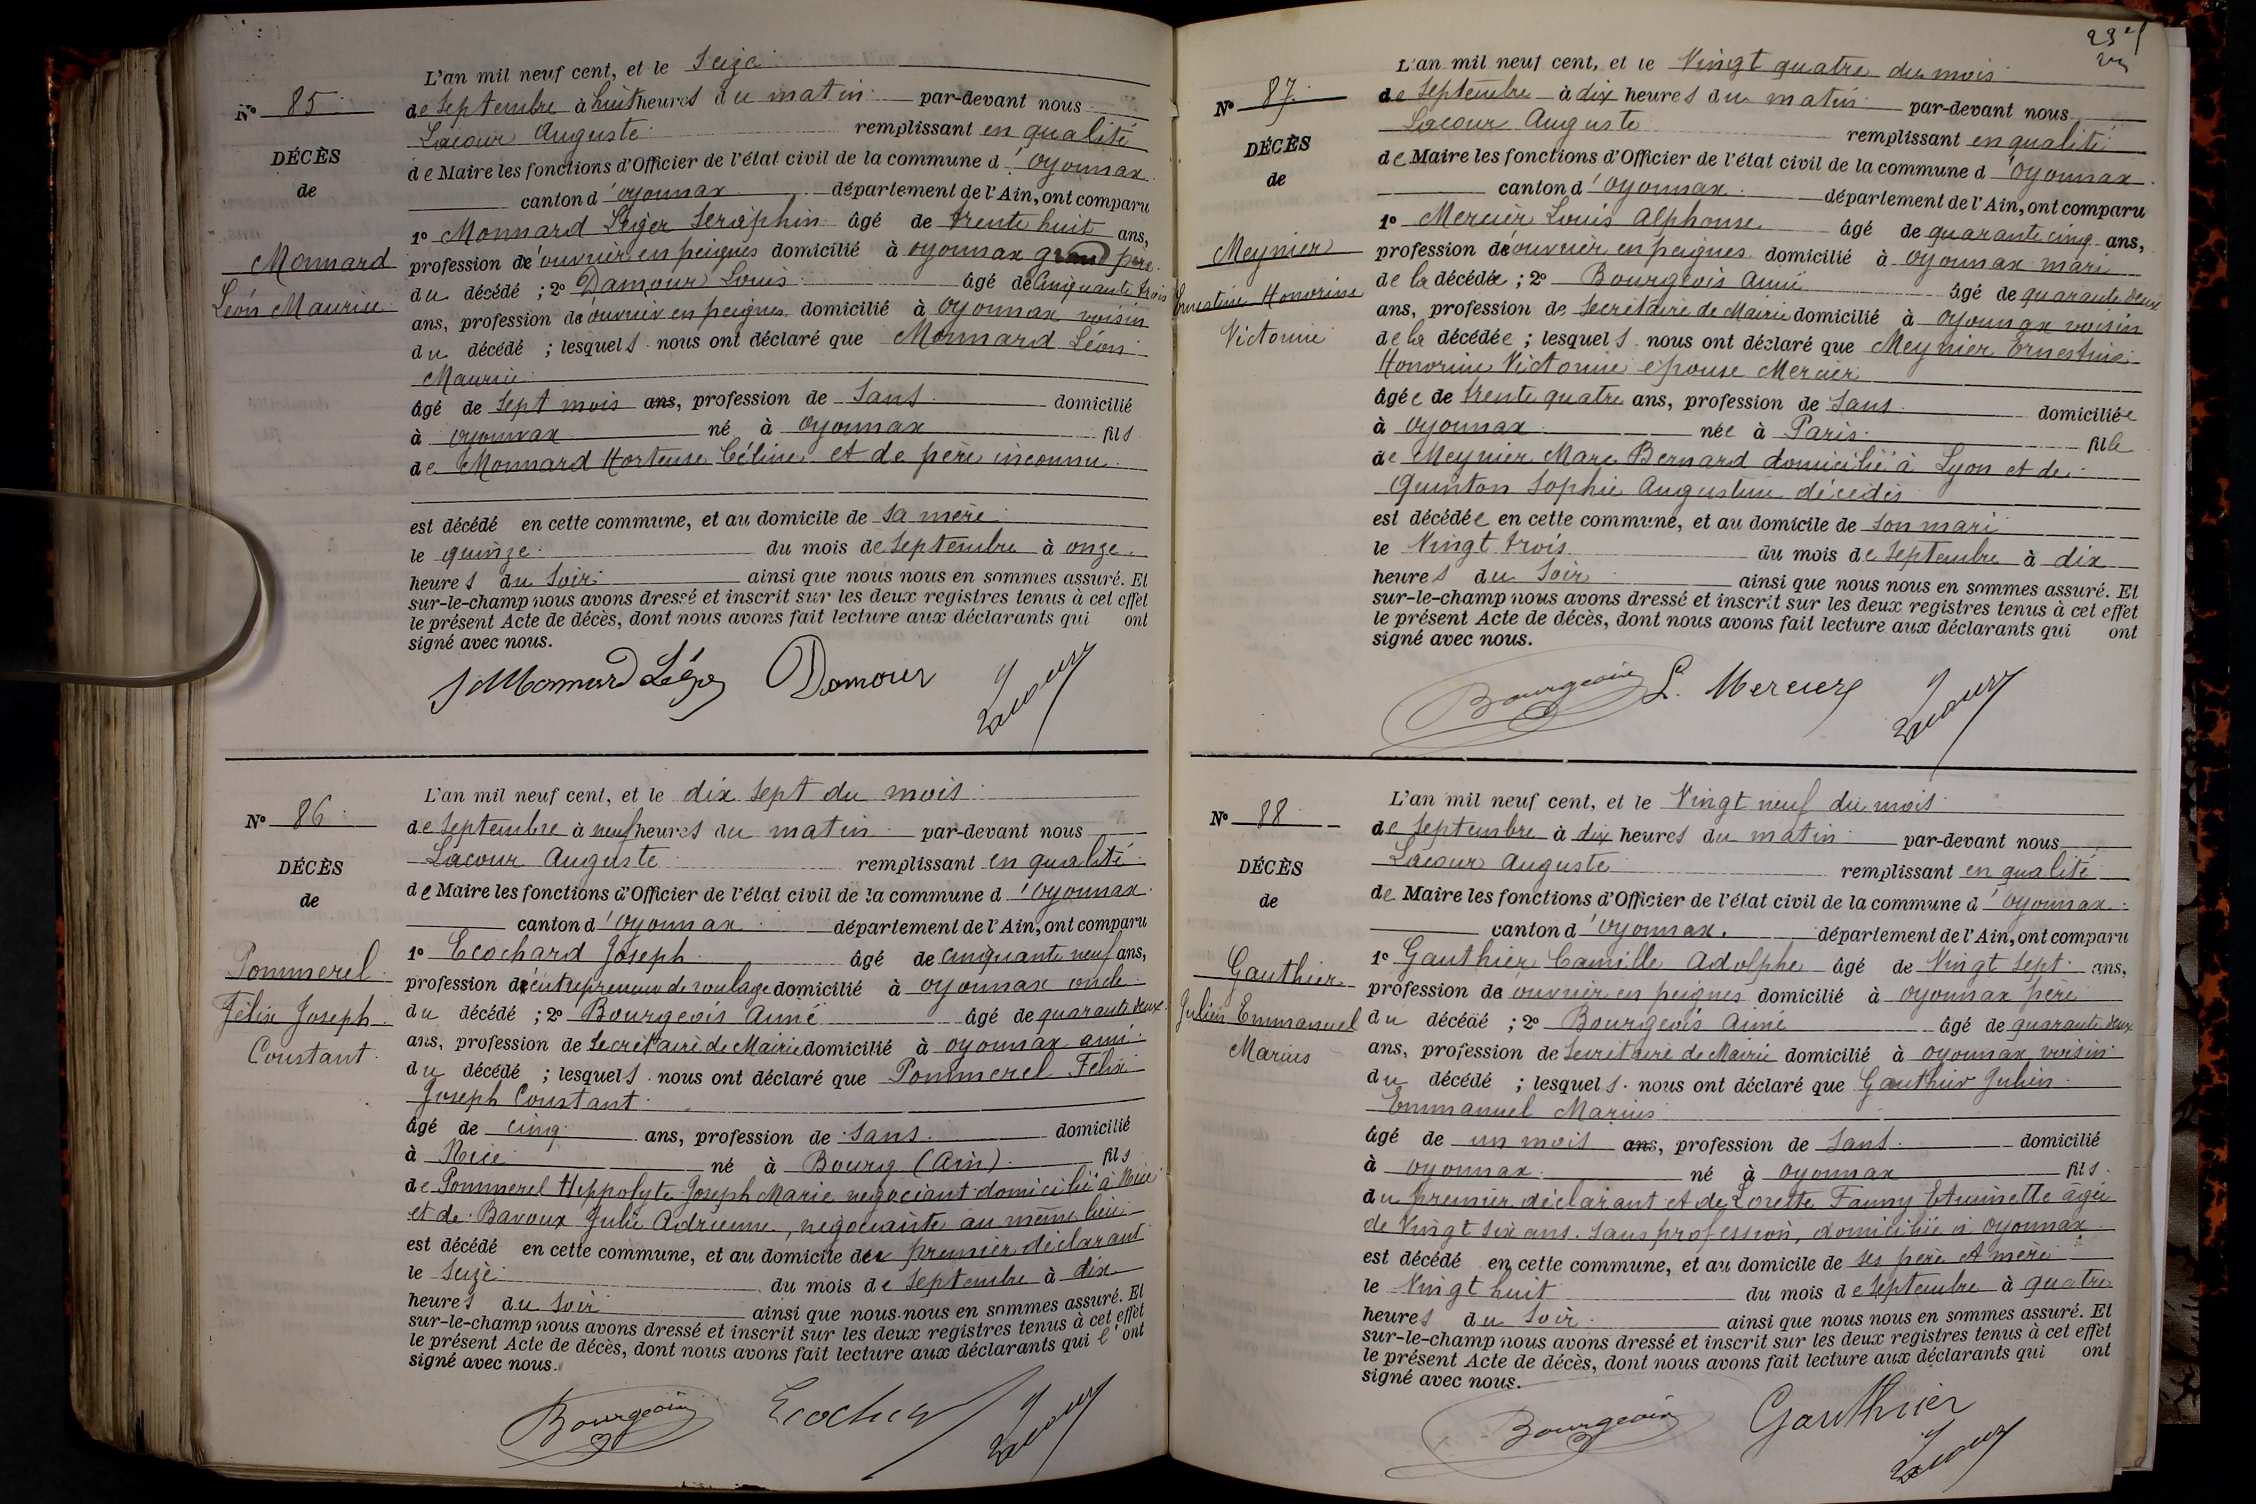 N° 85
DÉCÈS
de
Monnard
Léon Maurice
L'an mil neuf cent, et le Seize
de Septembre à huit heures du matin par-devant nous
Lacour Auguste remplissant en qualité
de Maire les fonctions d'Officier de l'état civil de la commune d'Oyonnax
canton d'Oyonnax département de l'Ain, ont comparu
1° Monnard Léger Séraphin âgé de trente huit ans,
profession d'ouvrier en peignes domicilié à Oyonnax grand père
du décédé ; 2° Damour Louis âgé de Cinquante trois
ans, profession d'ouvrier en peignes domicilié à Oyonnax voisin
du décédé ; lesquels nous ont déclaré que Monnard Léon
Maurice
âgé de Sept mois ans, profession de Sans domicilié
à Oyonnax né à Oyonnax fils
de Monnard Hortense Céline et de père inconnu
est décédé en cette commune, et au domicile de Sa mère
le quinze du mois de Septembre à onze
heures du Soir ainsi que nous nous en sommes assuré. Et
sur-le-champ nous avons dressé et inscrit sur les deux registres tenus à cet effet
le présent Acte de décès, dont nous avons fait lecture aux déclarants qui ont
signé avec nous.
Monnard Léger Damour Lacour
N° 86
DÉCÈS
de
Pommerel
Félix Joseph
Constant
L'an mil neuf cent, et le dix sept du mois
de Septembre à neuf heures du matin par-devant nous
Lacour Auguste remplissant en qualité
de Maire les fonctions d'Officier de l'état civil de la commune d'Oyonnax
canton d'Oyonnax département de l'Ain, ont comparu
1° Ecochard Joseph âgé de Cinquante neuf ans,
profession d'entrepreneur de roulage domicilié à Oyonnax oncle
du décédé ; 2° Bourgeois Aimé âgé de quarante deux
ans, profession de Secrétaire de Mairie domicilié à Oyonnax ami
du décédé ; lesquels nous ont déclaré que Pommerel Félix
Joseph Constant
âgé de cinq ans, profession de Sans domicilié
à Nice né à Bourg (Ain) fils
de Pommerel Hippolyte Joseph Marie négociant domicilié à Nice
et de Bavoux Julie Adrienne, négociante au même lieu
est décédé en cette commune, et au domicile du premier déclarant
le Seize du mois de Septembre à dix
heures du Soir ainsi que nous nous en sommes assuré. Et
sur-le-champ nous avons dressé et inscrit sur les deux registres tenus à cet effet
le présent Acte de décès, dont nous avons fait lecture aux déclarants qui l'ont
signé avec nous.
Bourgeois Lacour
23
N° 87
DÉCÈS
de
Meynier
Ernestine Honorine
Victorine
L'an mil neuf cent, et le Vingt quatre du mois
de Septembre à dix heures du matin par-devant nous
Lacour Auguste remplissant en qualité
de Maire les fonctions d'Officier de l'état civil de la commune d'Oyonnax
canton d'Oyonnax département de l'Ain, ont comparu
1° Mercier Louis Alphonse âgé de quarante cinq ans,
profession d'ouvrier en peignes domicilié à Oyonnax mari
de la décédée ; 2° Bourgeois Aimé âgé de quarante deux
ans, profession de Secrétaire de Mairie domicilié à Oyonnax voisin
de la décédée ; lesquels nous ont déclaré que Meynier Ernestine
Honorine Victorine épouse Mercier
âgée de trente quatre ans, profession de Sans domiciliée
à Oyonnax née à Paris fille
de Meynier Marc Bernard domicilié à Lyon et de
Quinton Sophie Augustine décédés
est décédée en cette commune, et au domicile de Son mari
le Vingt trois du mois de Septembre à dix
heures du Soir ainsi que nous nous en sommes assuré. Et
sur-le-champ nous avons dressé et inscrit sur les deux registres tenus à cet effet
le présent Acte de décès, dont nous avons fait lecture aux déclarants qui ont
signé avec nous.
Bourgeois L. Mercier Lacour
N° 88
DÉCÈS
de
Gauthier
Julien Emmanuel
Marius
L'an mil neuf cent, et le Vingt neuf du mois
de Septembre à dix heures du matin par-devant nous
Lacour Auguste remplissant en qualité
de Maire les fonctions d'Officier de l'état civil de la commune d'Oyonnax
canton d'Oyonnax. département de l'Ain, ont comparu
1° Gauthier Camille Adolphe âgé de Vingt Sept ans,
profession d'ouvrier en peignes domicilié à Oyonnax père
du décédé ; 2° Bourgeois Aimé âgé de quarante deux
ans, profession de Secrétaire de Mairie domicilié à Oyonnax voisin
du décédé ; lesquels nous ont déclaré que Gauthier Julien
Emmanuel Marius
âgé de un mois ans, profession de Sans domicilié
à Oyonnax né à Oyonnax fils
du premier déclarant et de Lorette Fanny Antoinette âgée
de Vingt Six ans. Sans profession, domiciliée à Oyonnax
est décédé en cette commune, et au domicile de ses père et mère
le Vingt huit du mois de Septembre à quatre
heures du Soir ainsi que nous nous en sommes assuré. Et
sur-le-champ nous avons dressé et inscrit sur les deux registres tenus à cet effet
le présent Acte de décès, dont nous avons fait lecture aux déclarants qui ont
signé avec nous.
Bourgeois Gauthier Lacour